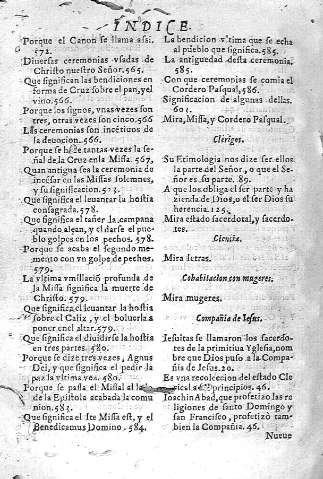 INDICE.
Porque el Canon se llama assi.
572.
Diuersas ceremonias vsadas de
Christo nuestro Señor. 565.
Que significan las bendiciones en
forma de Cruz sobre el pan, y el
vino. 566.
Porque los signos, vnas vezes son
tres, otras vezes son cinco. 566
Las ceremonias son incētiuos de
la deuocion. 566.
Porque se haze tantas vezes la señal
de la Cruz en la Missa. 567.
Quan antigua sea la ceremonia de
incēsar en las Missas solemnes,
y su significacion. 523.
Que significa el leuantar la hostia
consagrada. 578.
Que significa el tañer la campana
quando alçan, y el darse el pueblo
golpes en los pechos. 578.
Porque se acaba el segundo memento
con vn golpe de pechos.
579.
La vltima vmillaciō profunda de
la Missa significa la muerte de
Christo. 579.
Que significa el leuantar la hostia
sobre el Caliz, y el boluerla a
poner en el altar. 579.
Que significa el diuidirse la hostia
en tres partes. 580.
Porque se dize tres vezes, Agnus
Dei, y que significa el pedir la
paz la vltima vez. 580.
Porque se passa el Missal al
de la Epistola acabada la comunion.
583.
Que significa el Ite Missa est, y el
Benedicamus Domino. 584.
La bendicion vltima que se echa
al pueblo que significa. 585.
La antiguedad desta ceremonia.
585.
Con que ceremonias se comia el
Cordero Pasqual. 586.
Significacion de algunas dellas.
60
Mira, Missa, y Cordero Pasqual.
Clerigos.
Su Etimologia nos dize ser ellos
la parte del Señor, o que el Señor
es su parte. 89.
A que los obliga el ser parte y hazienda
de Dios, o el ser Dios su
herencia. 125.
Mira estado sacerdotal, y sacerdotes.
Ciencia.
Mira letras.
Cohabitacion con mugeres.
Mira mugeres.
Compañia de Iesus.
Iesuitas se llamaron los sacerdotes
de la primitiua Yglesia, nombre
que Dios puso a la Compañia
de Iesus. 20.
Es vna recoleccion del estado Clerical
principios. 46.
Ioachin Abad, que profetizo las religiones
de santo Domingo y
san Francisco, profetizò tambien
la Compañia. 46.
Nueue